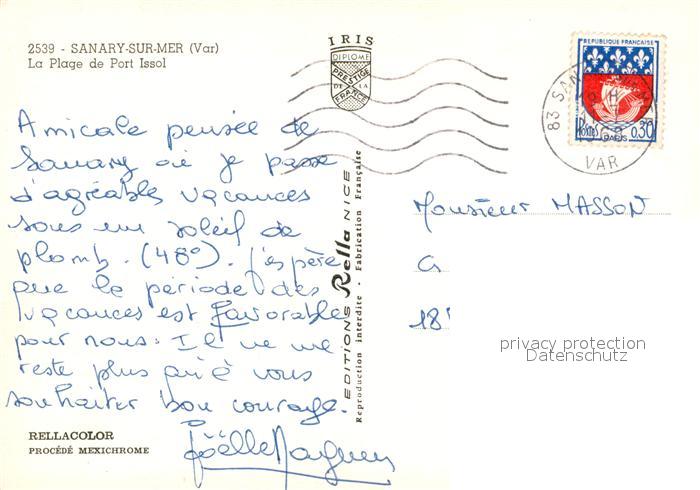 2539 - SANARY-SUR-MER (Var)
La Plage de Port Issol
IRIS
DIPLOME
PRESTIGE
DE LA
FRANCE
REPUBLIQUE FRANÇAISE
Postes 0,30
PARIS
83 SANARY
VAR
Amicale pensée de
Sanary où je passe
d'agréables vacances
sous un soleil de
plomb. (48°). J'espère
que la période des
vacances est favorable
pour nous. Il ne me
reste plus qu'à vous
souhaiter bon courage.
Joëlle
EDITIONS Rella NICE
Reproduction interdite - Fabrication Française
Monsieur MASSON
G
18
privacy protection
Datenschutz
RELLACOLOR
PROCÉDÉ MEXICHROME